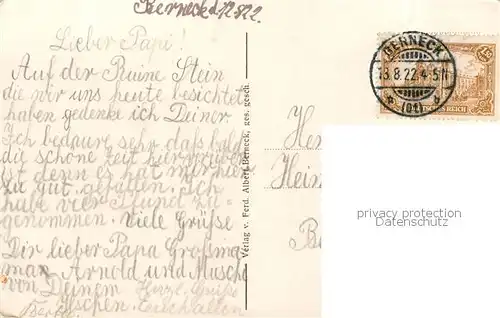 Berneck d. 12.8.22.
Lieber Papi!
Auf der Ruine Stein
die wir uns heute besichtet
haben gedenke ich Deiner.
Ich bedaure sehr daß bald
die schöne Zeit hier vorüber
ist denn es hat mir hier
zu gut gefallen. Ich
habe vier Pfund zu-
genommen. Viele Grüße
Dir lieber Papa Großma-
man Arnold und Musche
von Deinem
Verlag v. Ferd. Albert, Berneck, ges. gesch.
BERNECK
13.8.22. 4-5N
DEUTSCHES REICH
1¼
privacy protection
Datenschutz